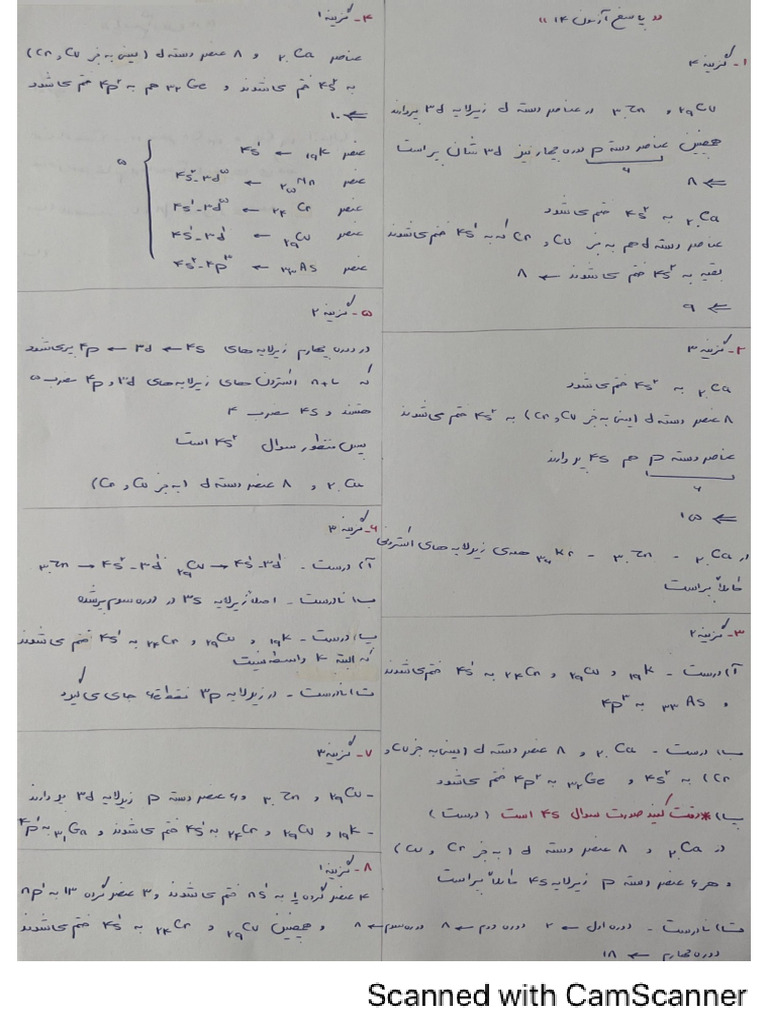 « پاسخ آزمون ۱۴ »
۱- گزینه ۴
₂₉Cu و ₃₀Zn در عناصر دسته d زیرلایه ۳d پر دارند
همچنین عناصر دسته p دوره چهارم نیز ۳d شان پر است
۶
⇐ ۸
₂₀Ca به ۴s² ختم می‌شود
عناصر دسته d هم به جز Cu و Cr که به ۴s¹ ختم می‌شوند
بقیه به ۴s² ختم می‌شوند ← ۸
⇐ ۹
۲- گزینه ۳
₂₀Ca به ۴s² ختم می‌شود
۸ عنصر دسته d (یعنی به جز Cu و Cr) به ۴s² ختم می‌شوند
عناصر دسته p هم ۴s پر دارند
۶
⇐ ۱۵
در ₂₀Ca - ₃₀Zn - ₃₆Kr همه‌ی زیرلایه های الکترونی
کاملاً پر است
۳- گزینه ۲
آ) درست - ₁₉K و ₂₉Cu و ₂₄Cr به ۴s¹ ختم می‌شوند
و ₃₃As به ۴p³
ب) درست - ₂₀Ca و ۸ عنصر دسته d (یعنی به جز Cu و
Cr) به ۴s² و ₃₂Ge به ۴p² ختم می‌شود
پ) *دقت کنید صورت سوال ۴s است (درست)
در ₂₀Ca و ۸ عنصر دسته d (به جز Cr و Cu)
و هر ۶ عنصر دسته p زیرلایه ۴s کاملاً پر است
ت) نادرست - دوره اول ← ۲ دوره دوم ← ۸ دوره سوم ← ۸
دوره چهارم ← ۱۸
۴- گزینه ۱
عناصر ₂₀Ca و ۸ عنصر دسته d (یعنی به جز Cu و Cr)
به ۴s² ختم می‌شوند و ₃₂Ge هم به ۴p² ختم می‌شود
⇐ ۱۰
عنصر ₁₉K ← ۴s¹
عنصر ₂₅Mn ← ۴s²-۳d⁵
عنصر ₂₄Cr ← ۴s¹-۳d⁵
عنصر ₂₉Cu ← ۴s¹-۳d¹⁰
عنصر ₃₃As ← ۴s²-۴p³
۵
۵- گزینه ۲
در دوره چهارم زیرلایه های ۴s ← ۳d ← ۴p پر می‌شود
که n+l الکترون های زیرلایه های ۳d و ۴p مضرب ۵
هستند و ۴s مضرب ۴
پس منظور سوال ۴s² است
₂₀Ca و ۸ عنصر دسته d (به جز Cu و Cr)
۶- گزینه ۳
آ) درست - ₂₉Cu → ۴s¹-۳d¹⁰ ₃₀Zn → ۴s²-۳d¹⁰
ب) نادرست - اصلاً زیرلایه ۳s در دوره سوم پر شده
پ) درست - ₁₉K و ₂₉Cu و ₂₄Cr به ۴s¹ ختم می‌شوند
که البته K واسطه نیست
ت) نادرست - در زیرلایه ۳p فقط ۶e جای می گیرد
۷- گزینه ۳
- ₂₉Cu و ₃₀Zn و ۶ عنصر دسته p زیرلایه ۳d پر دارند
- ₁₉K و ₂₉Cu و ₂₄Cr به ۴s¹ ختم می‌شوند و ₃₁Ga به ۴p¹
۸- گزینه ۱
۴ عنصر گروه ۱ به ns¹ ختم می‌شوند و ۳ عنصر گروه ۱۳ به np¹
و همچنین ₂₉Cu و ₂₄Cr به ۴s¹ ختم می‌شوند
Scanned with CamScanner